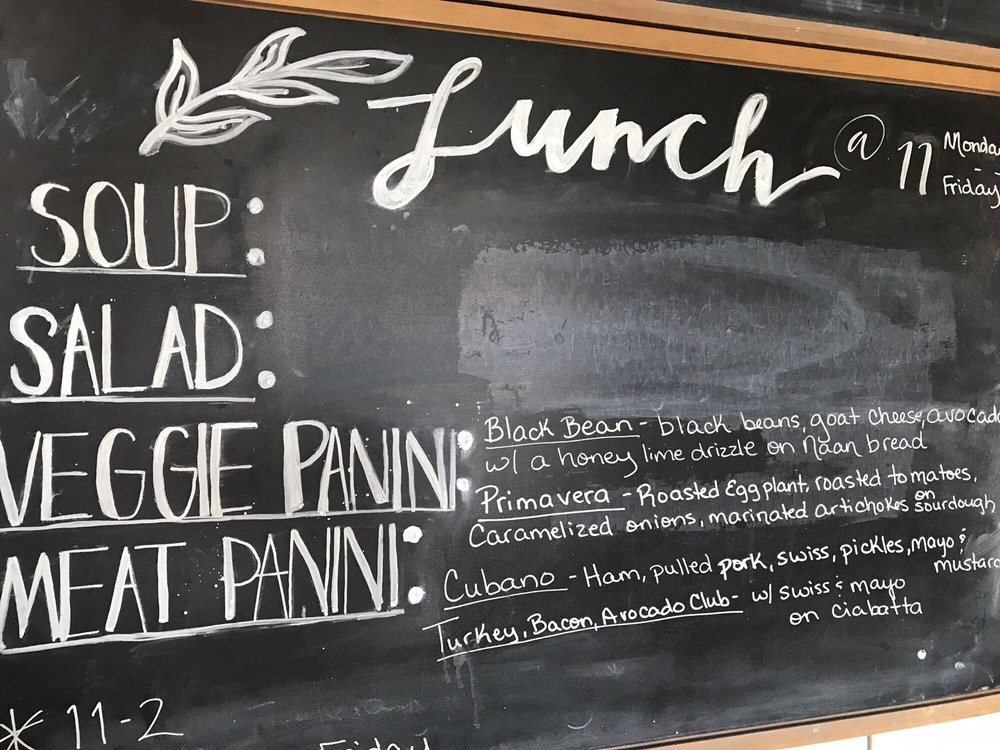 Lunch @ 11 Monda
-
Friday
SOUP:
SALAD:
VEGGIE PANINI:
Black Bean - black beans, goat cheese, avocado
w/ a honey lime drizzle on Naan bread
Primavera - Roasted Eggplant, roasted tomatoes,
Caramelized onions, marinated artichokes on sourdough
MEAT PANINI:
Cubano - Ham, pulled pork, swiss, pickles, mayo &
mustard
Turkey, Bacon, Avocado Club - w/ swiss & mayo
on Ciabatta
* 11-2
Friday